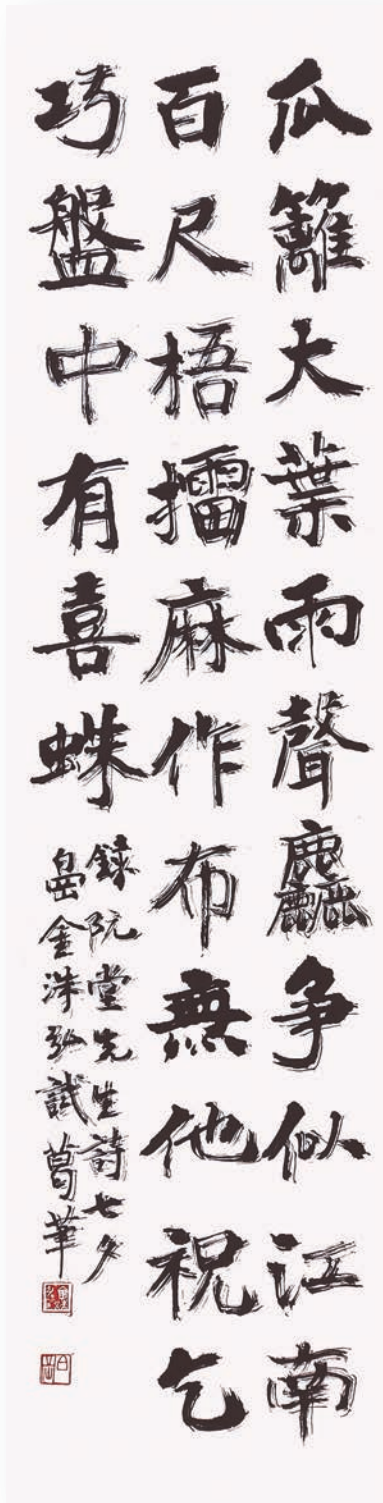 瓜籬大葉雨聲麤争似江南
百尺梧擂麻作布無他祝乞
巧盤中有喜蛛
錄阮堂先生詩七夕
金洙弘試葛筆